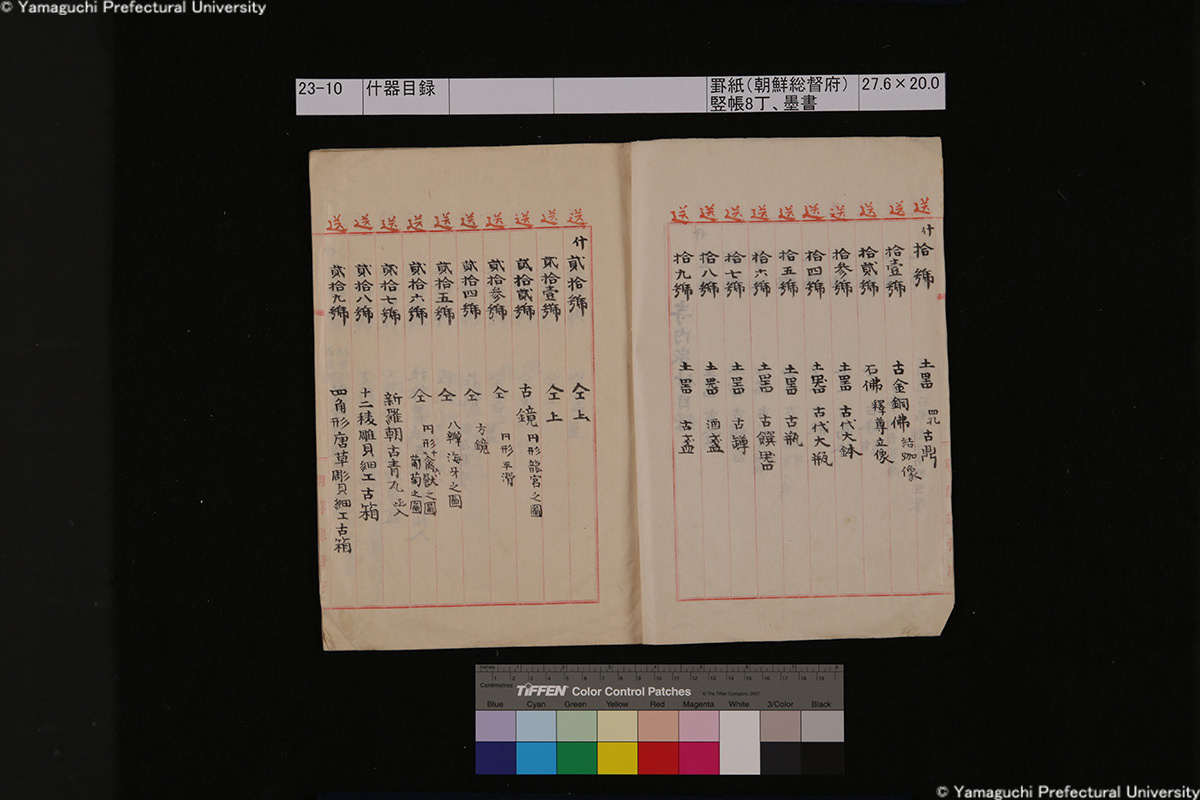 © Yamaguchi Prefectural University
23-10 什器目録 罫紙(朝鮮総督府) 27.6×20.0
竪帳8丁、墨書
送 什拾號 土噐 四孔古鼎
送 拾壹號 古金銅佛 結跏像
送 拾貳號 石佛 釋尊立像
送 拾参號 土噐 古代大鉢
送 拾四號 土噐 古代大瓶
送 拾五號 土噐 古瓶
送 拾六號 土噐 古饌噐
送 拾七號 土噐 古罇
送 拾八號 土噐 酒盞
送 拾九號 土噐 古盞
送 什貳拾號 仝上
送 貳拾壹號 仝上
送 貳拾貳號 古鏡 円形龍宮之圖
送 貳拾参號 仝 円形平滑
送 貳拾四號 仝 方鏡
送 貳拾五號 仝 八瓣海牙之圖
送 貳拾六號 仝 円形禽獣之圖 葡萄之圖
送 貳拾七號 新羅朝古青瓦 函入
送 貳拾八號 十二稜雕貝細工古箱
送 貳拾九號 四角形唐草彫貝細工古箱
inches 1 2 3 4 5 6 7 8
Centimetres 1 2 3 4 5 6 7 8 9 10 11 12 13 14 15 16 17 18 19
TIFFEN Color Control Patches © The Tiffen Company, 2007
Blue Cyan Green Yellow Red Magenta White 3/Color Black
© Yamaguchi Prefectural University